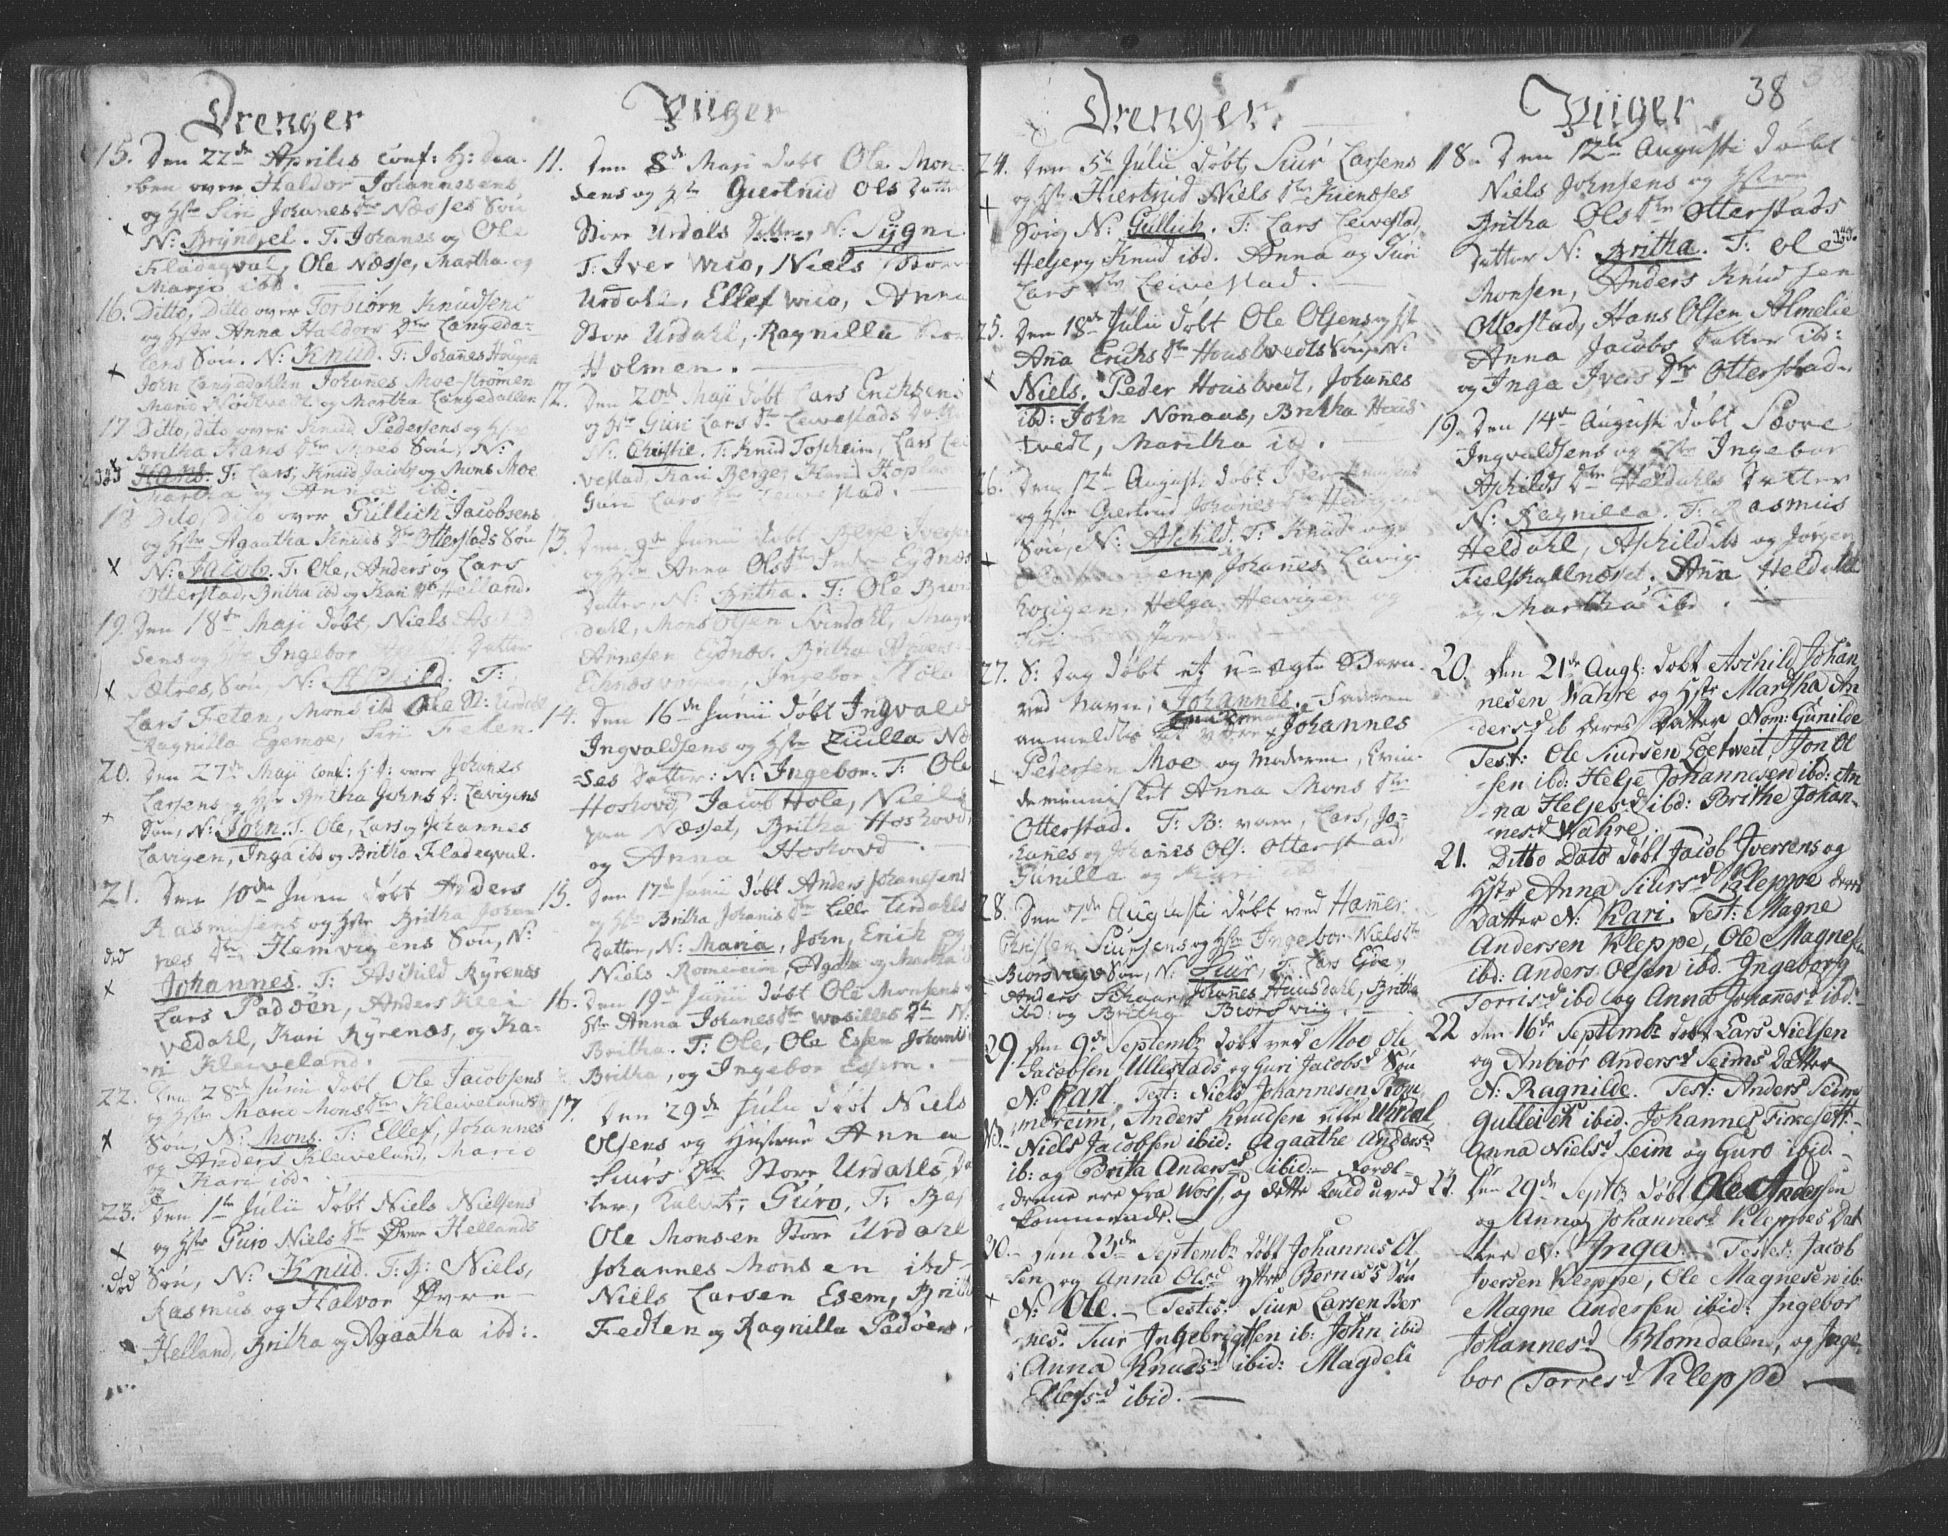 Drenger
15. Den 22de Aprilis conf: H: Daa-
ben over Haldor Johannesens
og Hstr Siri Johanesdtr Næsses Søn
N: Bryngel. T: Johanes og Ole
Fladeqval, Ole Næsse, Martha og
Marje ibd.
16. Ditto, Ditto over Torbiørn Knudsens
og Hstr Anna Haldors Dtr Langeda-
lens Søn. N: Knud. T: Johanes Hougen
John Langedahlen Johanes Moe-strømen
Mario Nødtvedt og Martha Langedallen
17. Ditto, dito over Knud Pedersens og Hstr
Britha Hans Dtr Moes Søn, N:
Hans. T: Lars, Knud Jacob og Mons Moe
Martha og Anna ibd:
18. Dito, Dito over Gullich Jacobsens
og Hstr Agaatha Knuds Dtr Otterstads Søn
N: Jacob. T: Ole, Anders og Lars
Otterstad, Britha ibd og Kari Heiland.
19. Den 18de Maji døbt, Niels
Sens og Hstr Ingebor Datter
Sætres, Søn, N: Aschild. T:
Lars Feten, Mons ibd Ole St: Urdal
Ragnilla Egemoe, Siri Feten.
20. Den 27de Maji conf: H: D: over Johanes
Larsens og Hstr Britha Johns D: Lavigens
Søn, N: John. T: Ole, Lars og Johannes
Lavigen, Inga ibd og Britha Fladeqval.
21. Den 10de Junii døbt Anders
Rasmusens og Hstr Britha Johan-
død nes Dtr Hemvigens Søn, N:
Johannes. T: Aschild Kyrenæs
Lars Padøen, Anders Klei-
vedahl, Kari Kyrenæs, og Ka-
ri Kleiveland.
22. Den 28de Junii døbt Ole Jacobsens
og Hstr Mario Monsdtr Kleivelands
Søn, N: Mons. T: Ellef, Johannes
og Anders Kleiveland, Mario
og Kari ibd.
23. Den 1te Julii døbt Niels Nielsens
og Hstr Guro Niels Dtr Øvre Hellands
død Søn, N: Knud. T: B: Niels,
Rasmus og Halvor Øvre
Helland, Britha og Agaatha ibd:.
Piiger
11. Den 8de Maji døbt Ole Mon-
sens og Hstr Giertrud Ols Datter
Store Urdals Datter, N: Sygni.
T: Iver Wico, Niels Store
Urdahl, Ellef Wico, Anna
Stor Urdahl, Ragnilla Stor
Holmen.
12. Den 20de Maji døbt Lars Erichsens
og Hstr Guri Lars Dtr Leivestads Datter
N: Christie. T: Knud Toscheim, Lars Lei-
vestad, Kari Berge, Kari Hopland
Guri Lars Dtr Leivestad.
13. Den 9de Junii døbt Iversens
og Hstr Anna Olsdtr Eydnæs
Datter, N: Britha. T: Ole
dahl, Mons Olsen Svindahl,
Arnesen Eydnæs, Britha
Ingebor
14. Den 16de Junii døbt Ingvald
Ingvaldsens og Hstr Zicilla Næs-
ses Datter: N: Ingebor. T: Ole
Hoskovd, Jacob Hole, Niels
Næsset, Britha Hoskovd,
og Anna Hoskovd.
15. Den 17de Junii døbt Anders Johanesens
og Hstr Britha Johanis Dtr Lille Urdahls
Datter, N: Maria, John, Erich og
Niels Romereim, Agatha og Martha
16. Den 19de Junii døbt Ole Monsens
Hstr Anna Johanesdtr Wosilles Dtr N:
Britha. T: Ole, Ole Essen Johanes
Britha, og Ingebor Essem.
17. Den 29de Julii døbt Niels
Olsens og Hustrue Anna
Siurs Dtr Store Urdalls Dat-
ter, kaldet, Guro, T:
Ole Monsen Store Urdahl
Johannes Monsen ibd
Niels Larsen Esem, Britha
Fedten og Ragnilla Padøen.
Drenger.
24. Den 5te Julii døbt Siur Larsens
og Hstr Hiertrud Niels Dtr Kienæses
Søn, N: Gullich. T: Lars Leivestad,
Helje og Knud ibd. Anna og Guri
Lars Dtr Leivestad.
25. Den 18de Julii døbt Ole Olsens og Hst
Ana Erichs Dtr Houstvedts Søn, N:
Niels. Peder Houstvedt, Johanes
ibd: John Nonaas, Britha Hous-
tvedt, Maritha ibd.
26. Den 12te Augusti døbt Iver Knudsens
og Hstr Giertrud Johanes Dtr
Søn, N: Aschild. T: Knud og
Johanes Lavig
Helga Heivigen og
27. S: Dag døbt et u-ægte Barn
ved Navn; Johannes. Faderen
anmeldtes at være Johannes
Pedersen Moe og Moderen, Qvin-
demennisket Anna Mons Dtr
Otterstad. T: B: vare, Lars, Jo-
hanes og Johanes Ols: Otterstad,
Gunilla og Kari ibd
28. Den 7de Augusti døbt ved Hamer
Siursens og Hstr Ingebor Nielsdtr
Biorsvigs Søn, N: Siur, T: Lars Eyde,
Anders Johanes Huusdahl, Britha
ibd: og Britha Biorsviig.
29. Den 9de Septembr døbt ved Moe Ole
Jacobsen Ullestads og Guri Jacobsd Søn
N: Carl, Test: Niels Johannesen Rom-
mereim, Anders Knudsen Lille Urdal,
NB. Niels Jacobsen ibid: Agaathe Andersd
ib: og Brita Andersd ibid:- Foræl-
drene ere fra Woss, og dette Kuld uved-
kommende.
30. Den 23de Septembr døbt Johannes Ol-
sen og Anna Olsd ytre Berness Søn
N: Ole. - Testes: Siur Larsen Ber
nes. Siur Ingebrigtsen ib: John ibid
Anna Knudsd ibid: Magdeli
Ellefsd ibid.
Piiger 38
18. Den 12te Augusti døbt
Niels Johnsens og Hstrue
Britha Olsdtr Otterstads
Datter N: Britha. T: Ole
Monsen, Anders Knudsen
Otterstad, Hans Olsen Almelie
Anna Jacobs Datter ibd:
og Inga Ivers Dtr Otterstad.
19. Den 14de Augusti døbt Sævre
Ingvaldsens og Hstr Ingebor
Aschilds Dtr Heldahls Datter
N: Ragnilla. T: Rasmus
Heldahl, Aschild ib og Jørgen
Fielskaalnæset. Anna Heldahl
og Martha ibd.
20. Den 21de Augs: døbt Aschild Johan
nesen Wahre og Hstr Maritha An
dersd ib deres Datter Nom: Gunilde
Test: Ole Siursen Loftveit, Jon Ol
sen ibd: Helje Johannesen ibd: An
na Heljesd ibd: Brithe Johan-
nesd Wahre
21. Ditto Dato døbt Jacob Iversens og
Hstr Anna Siursd Kleppe deres
Datter N: Kari. Test: Magne
Andersen Kleppe, Ole Magnesen
ibd: Anders Olsen ibd. Ingeborg
Torrisd ibd og Anna Johannesd ibd:-
22 Den 16de Septembr døbt Lars Nielsen
og Anbiør Andersd Seims Datter
N: Ragnilde. Test: Anders Seim
Gulleich ibid. Johannes Firkesett
Anna Nielsd Seim og Guro ibid.-
23. Den 29de Septbr døbt Ole Andersen
og Anna Johannesd Kleppes Dat
ter N: Inga.- Testes: Jacob
Iversen Kleppe, Ole Magnesen ib:
Magne Andersen ibid: Ingebor
Johannesd Blomdalen, og Inge-
bor Torresd Kleppe.